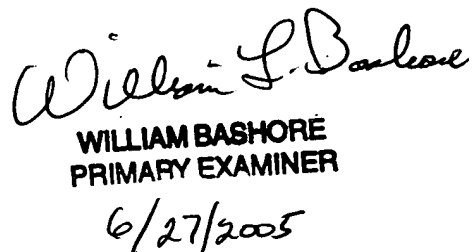 William L. Bashore
WILLIAM BASHORE
PRIMARY EXAMINER
6/27/2005